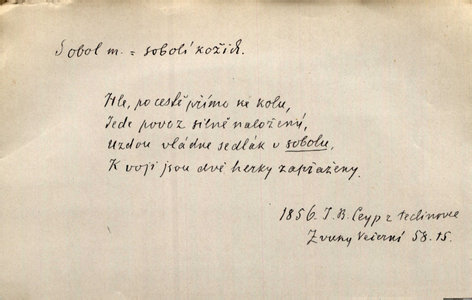 Sobol m. = sobolí kožich.
Hle, po cestě přímo ke kolu,
Jede povoz silně naložený,
Uzdou vládne sedlák v sobolu,
K voji jsou dvě herky zapřaženy.
1856. J. B. Ceyp z Peclinovce
Zvuky Večerní 58. 15.